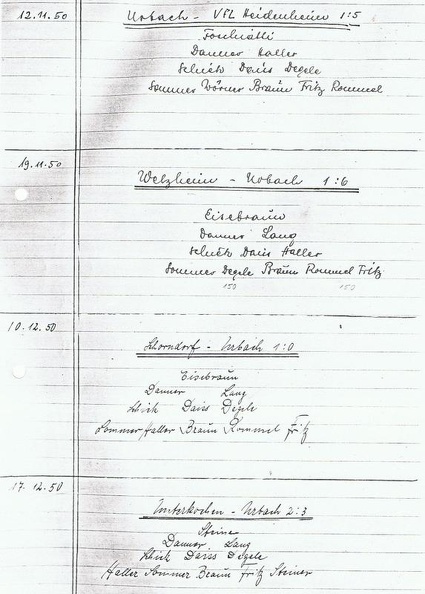 12.11.50
Urbach - VFL Heidenheim 1:5
Danner Haller
Schick Daiss Degele
Sommer Wörner Braun Fritz Rommel
19.11.50
Welzheim - Urbach 1:6
Eisebraun
Danner Lang
Schick Daiss Haller
Sommer Degele Braun Rommel Fritz
150 150
10.12.50
Schorndorf - Urbach 1:0
Eisebraun
Danner Lang
Schick Daiss Degele
Sommer Haller Braun Rommel Fritz
17.12.50
Unterkochen - Urbach 2:3
Danner Lang
Schick Daiss Degele
Haller Sommer Braun Fritz Steiner